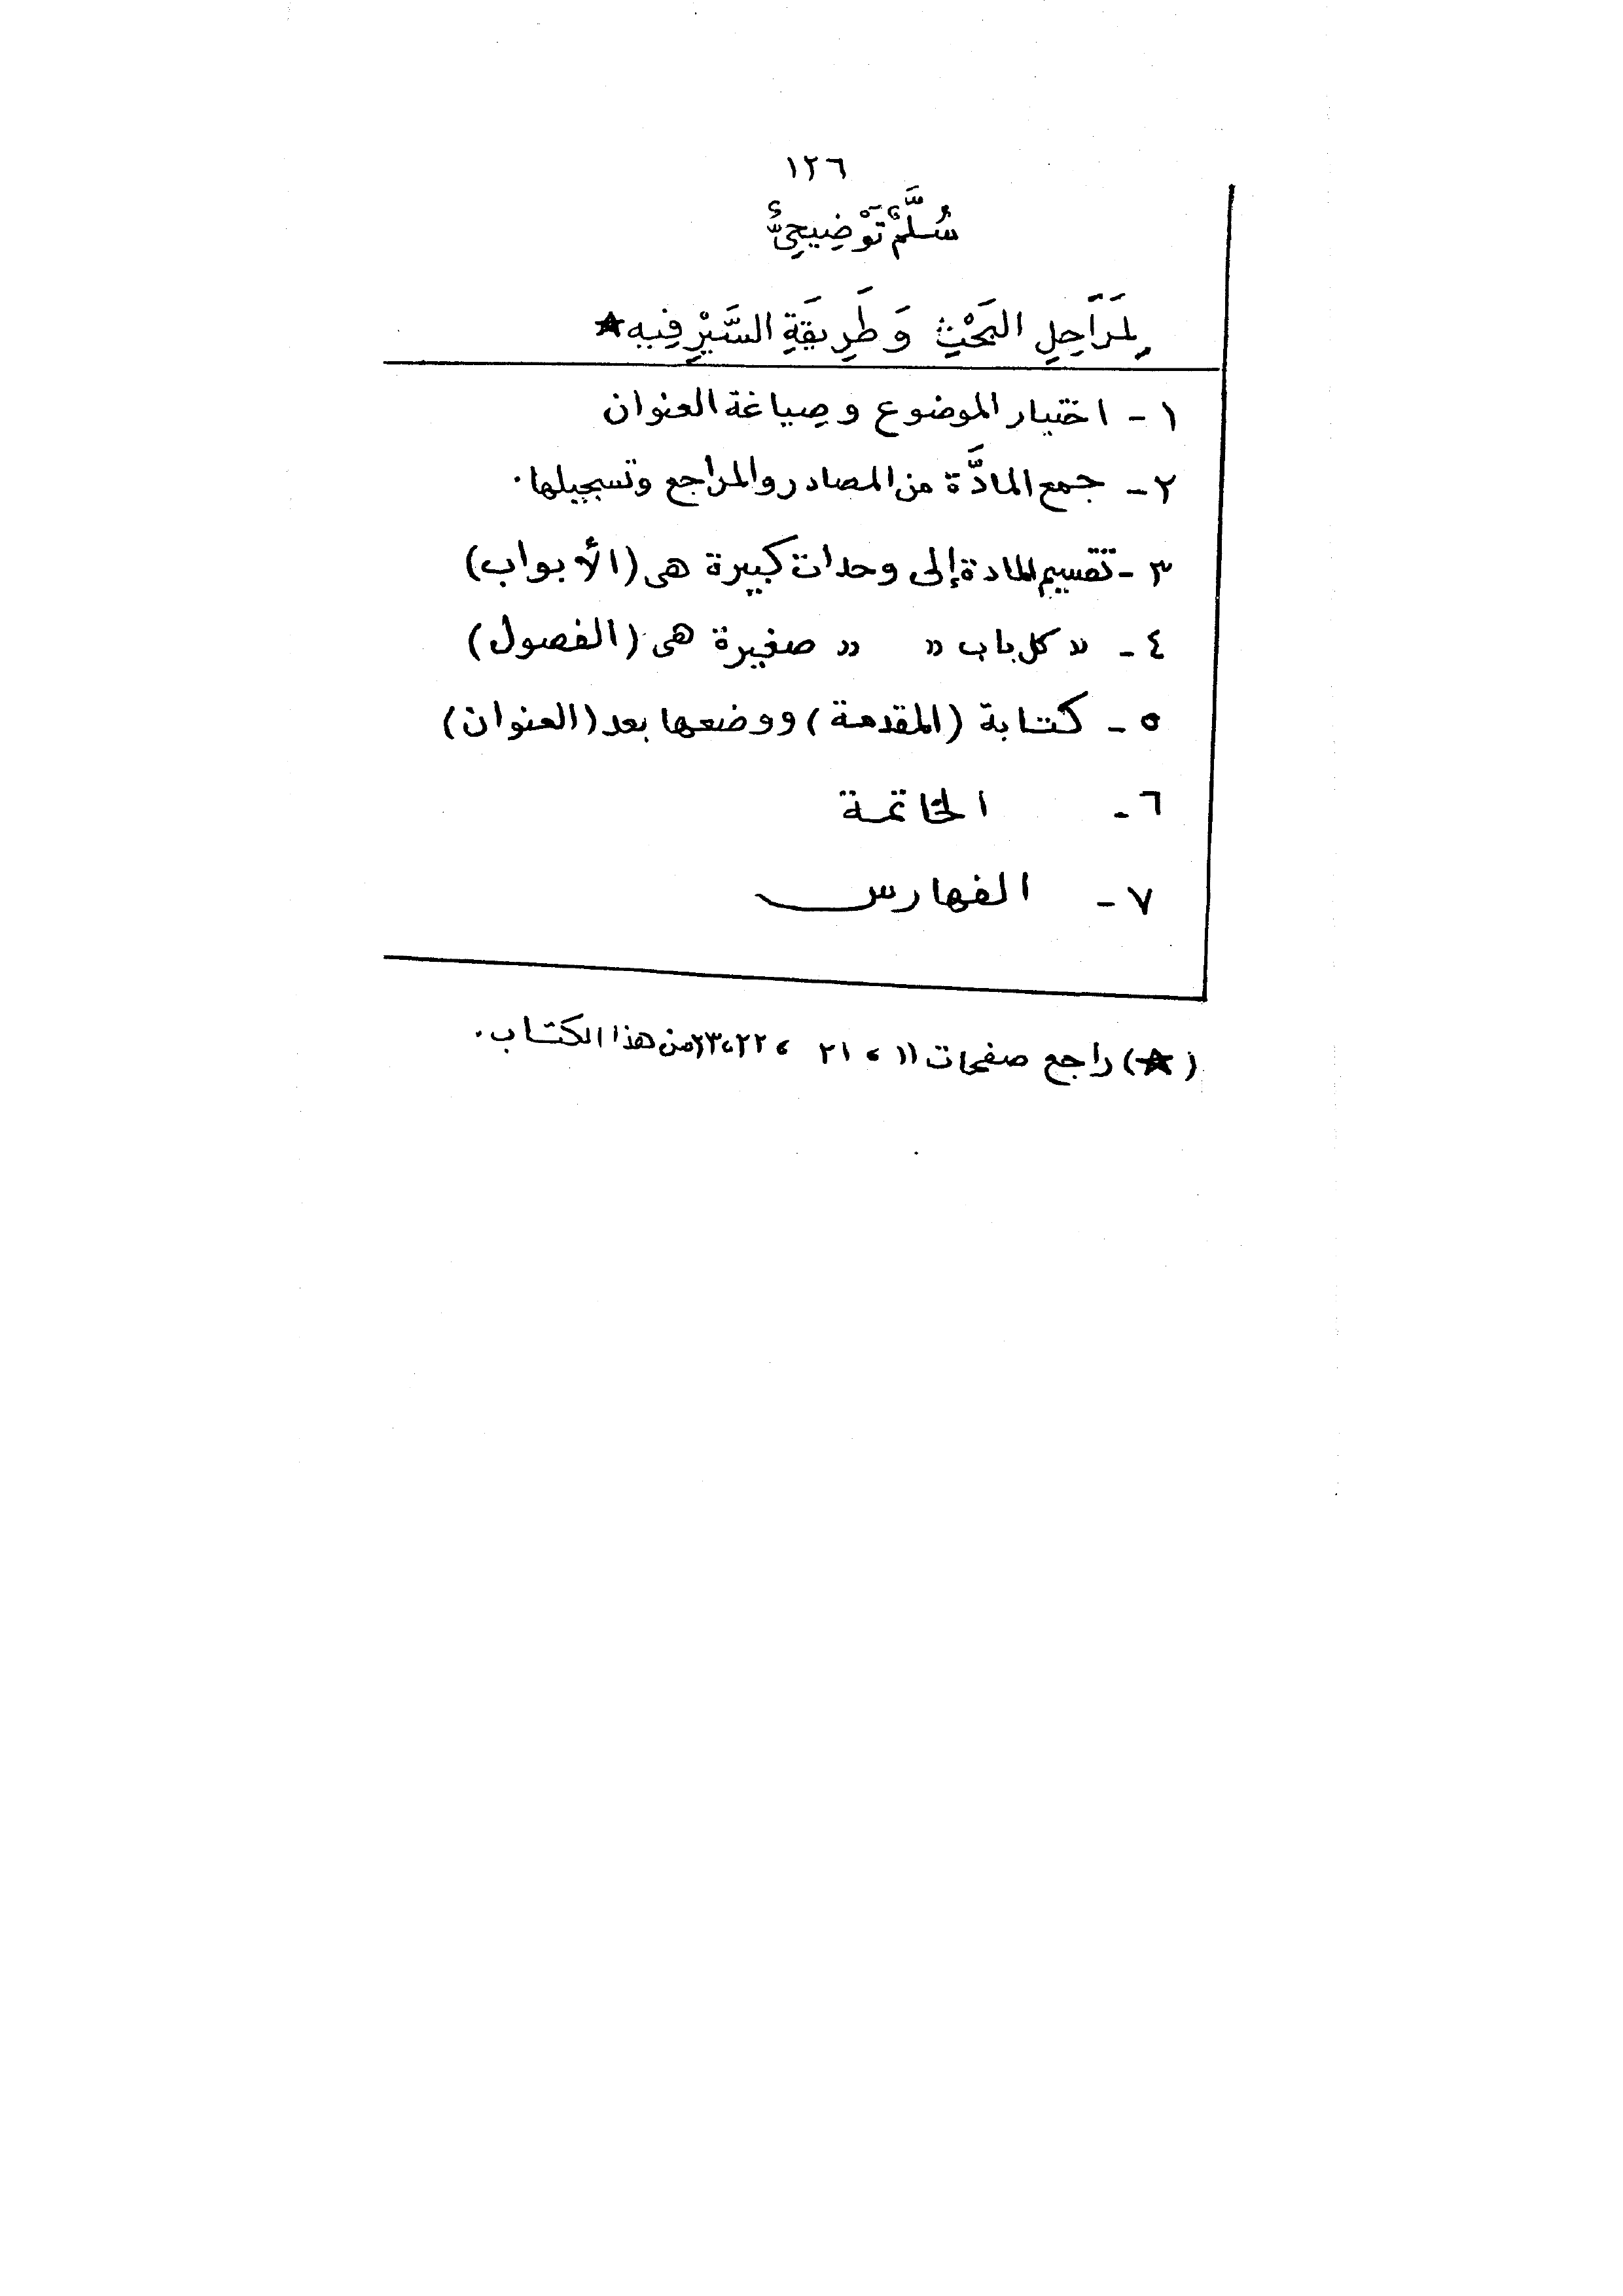 ١٢٦
سُلَّمٌ تَوْضِيحِيٌّ
لِمَرَاحِلِ البَحْثِ وَطَرِيقَةِ السَّيْرِ فِيهِ ★
١ - اختيار الموضوع وصياغة العنوان
٢ - جمع المادَّة من المصادر والمراجع وتسجيلها.
٣ - تقسيم المادة إلى وحدات كبيرة هى (الأبواب)
٤ - » كل باب » » صغيرة هى (الفصول)
٥ - كتابة (المقدمة) ووضعها بعد (العنوان)
٦ - الخاتمة
٧ - الفهارس
(★) راجع صفحات ١١ ، ٢١ ، ٢٢، ٢٣ من هذا الكتاب.